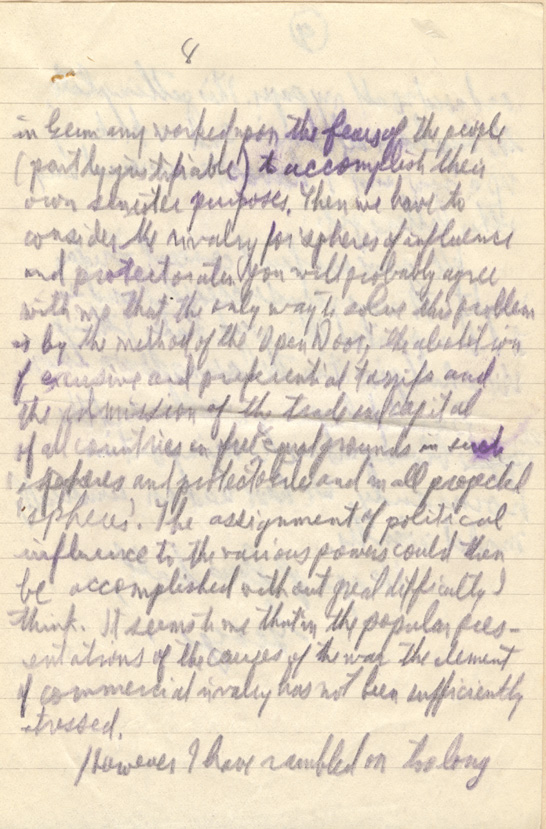 8
in Germany worked upon the fears of the people
(partly justifiable) to accomplish their
own sinister purposes. Then we have to
consider the rivalry for spheres of influence
and protectorates. You will probably agree
with me that the only way to solve this problem
is by the method of the 'Open Door', the abolition
of exusive and preferential tariffs and
the admission of the trade and capital
of all countries on free & equal grounds in such
spheres and protectorates and in all projected
'spheres'. The assignment of political
influence to the various powers could then
be accomplished without great difficulty I
think. It seems to me that in the popular pres-
entations of the causes of the war the element
of commercial rivalry has not been sufficiently
stressed.
However I have rambled on too long